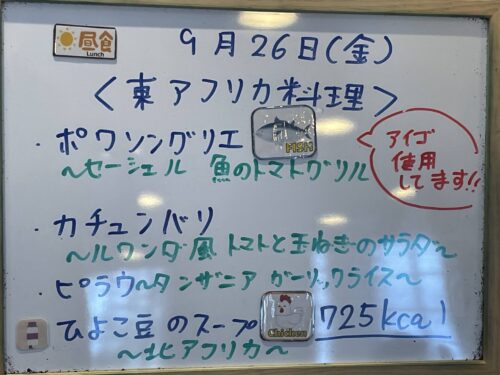 昼食
Lunch
9月26日(金)
<東アフリカ料理>
・ポワソングリエ
FISH
~セーシェル 魚のトマトグリル
アイゴ
使用
してます!!
・カチュンバリ
~ルワンダ風トマトと玉ねぎのサラダ~
・ピラウ~タンザニア ガーリックライス~
・ひよこ豆のスープ
Chicken
725kcal
~北アフリカ~